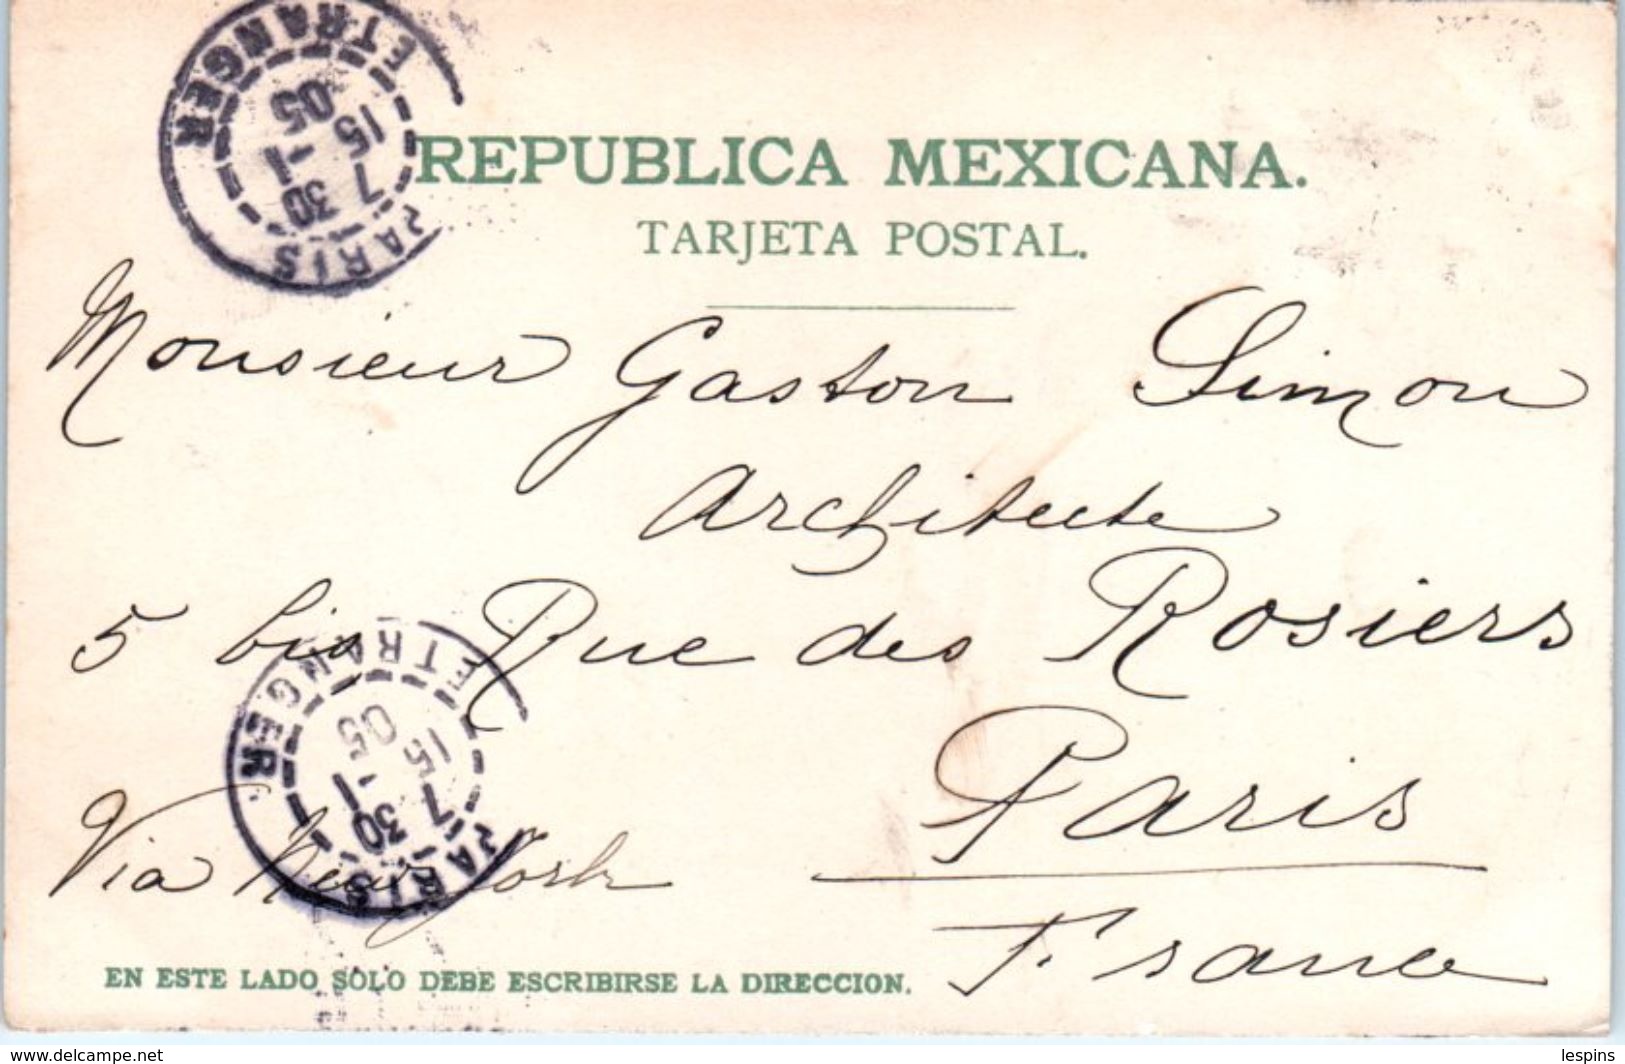 ETRANGER
05
15 -1
7 30
PARIS
REPUBLICA MEXICANA.
TARJETA POSTAL.
Monsieur Gaston Simon
Architecte
5 bis Rue des Rosiers
Paris
Via New York
France
ETRANGER
05
15 -1
7 30
PARIS
EN ESTE LADO SOLO DEBE ESCRIBIRSE LA DIRECCION.
www.delcampe.net
lespins